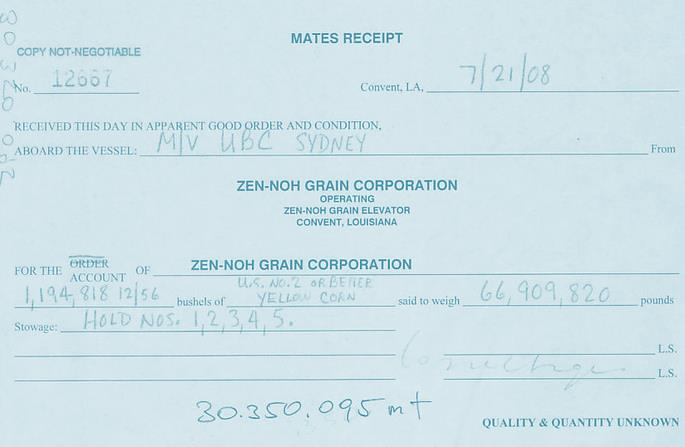 MATES RECEIPT
COPY NOT-NEGOTIABLE
No. 12667 Convent, LA, 7/21/08
RECEIVED THIS DAY IN APPARENT GOOD ORDER AND CONDITION,
ABOARD THE VESSEL: M/V UBC SYDNEY From
ZEN-NOH GRAIN CORPORATION
OPERATING
ZEN-NOH GRAIN ELEVATOR
CONVENT, LOUISIANA
FOR THE ORDER ACCOUNT OF ZEN-NOH GRAIN CORPORATION
1,194,818 12/56 bushels of U.S. NO.2 OR BETTER YELLOW CORN said to weigh 66,909,820 pounds
Stowage: HOLD NOS. 1,2,3,4,5.
L.S.
L.S.
30.350.095 mt
QUALITY & QUANTITY UNKNOWN